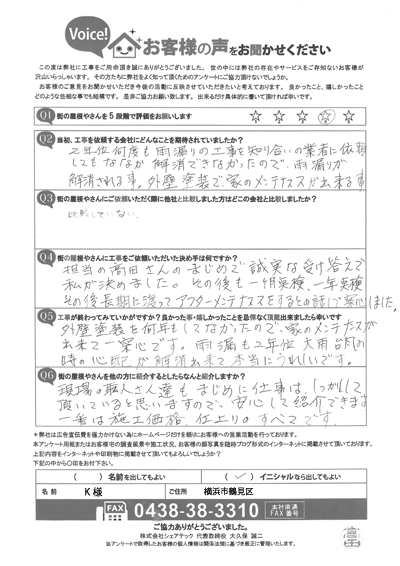 Voice!
お客様の声をお聞かせください
この度は弊社に工事をご用命頂き誠にありがとうございました。世の中には弊社の存在やサービスをご存知ないお客様が
沢山いらっしゃいます。その方たちに弊社をよく知って頂くためのアンケートにご協力頂けないでしょうか。
お客様のご意見をお聞かせいただき今後の活動に反映させていただきたいと考えております。良かったこと、嬉しかったこと
どのような些細な事でも結構です。是非ご協力お願い致します。出来るだけ具体的に書いて頂ければ幸いです。
Q1 街の屋根やさんを5段階で評価をお願いします ☆ ☆ ☆ ☆ ☆
Q2 当初、工事を依頼する会社にどんなことを期待されていましたか?
2年位何度も雨漏りの工事を知り合いの業者に依頼
してもなかなか解消できなかったので、雨漏りが
解消される事。外壁塗装で、家のメンテナンスが出来る事
Q3 街の屋根やさんにご依頼いただく際に他社と比較しました方はどこの会社と比較しましたか?
比較していない。
Q4 街の屋根やさんに工事をご依頼いただいた決め手は何ですか?
担当の高田さんのまじめで誠実な受け答えで
私が決めました。その後も一ヶ月点検、一年点検
その後長期に渡ってアフターメンテナンスをするとの話で安心しました。
Q5 工事が終わってみていかがですか?良かった事・嬉しかったことを忌憚なく頂戴出来ましたら幸いです
外壁塗装を何年もしてなかったので、家のメンテナンスが
出来て一安心です。雨漏も2年位大雨台風の
時の心配が解消出来て本当にうれしいです。
Q6 街の屋根やさんを他の方に紹介するとしたらなんと紹介しますか?
現場の職人さん達もまじめに仕事は、しっかりして
頂いていると思いますので、安心して紹介できます
一番は施工価格、仕上りのすべてです。
*弊社は広告宣伝費を極力かけない為にホームページだけを頼りにお客様への営業活動を行っております。
本アンケート用紙またはお客様宅の調査風景や施工状況、お客様の顔写真を随時ブログ形式のインターネットに掲載させて頂いております。
上記内容をインターネットや印刷物に掲載させて頂いてもよろしいでしょうか?
下記の中から○印をお付下さい。
( ) 名前を出してもよい ( ✓ ) イニシャルなら出してもよい
名前 K様 ご住所 横浜市鶴見区
FAX 0438-38-3310 本社直通 FAX番号
ご協力ありがとうございました。
株式会社シェアテック 代表取締役 大久保 誠二
当アンケートで取得したお客様の個人情報は関係法規に基づき適正に管理いたします。